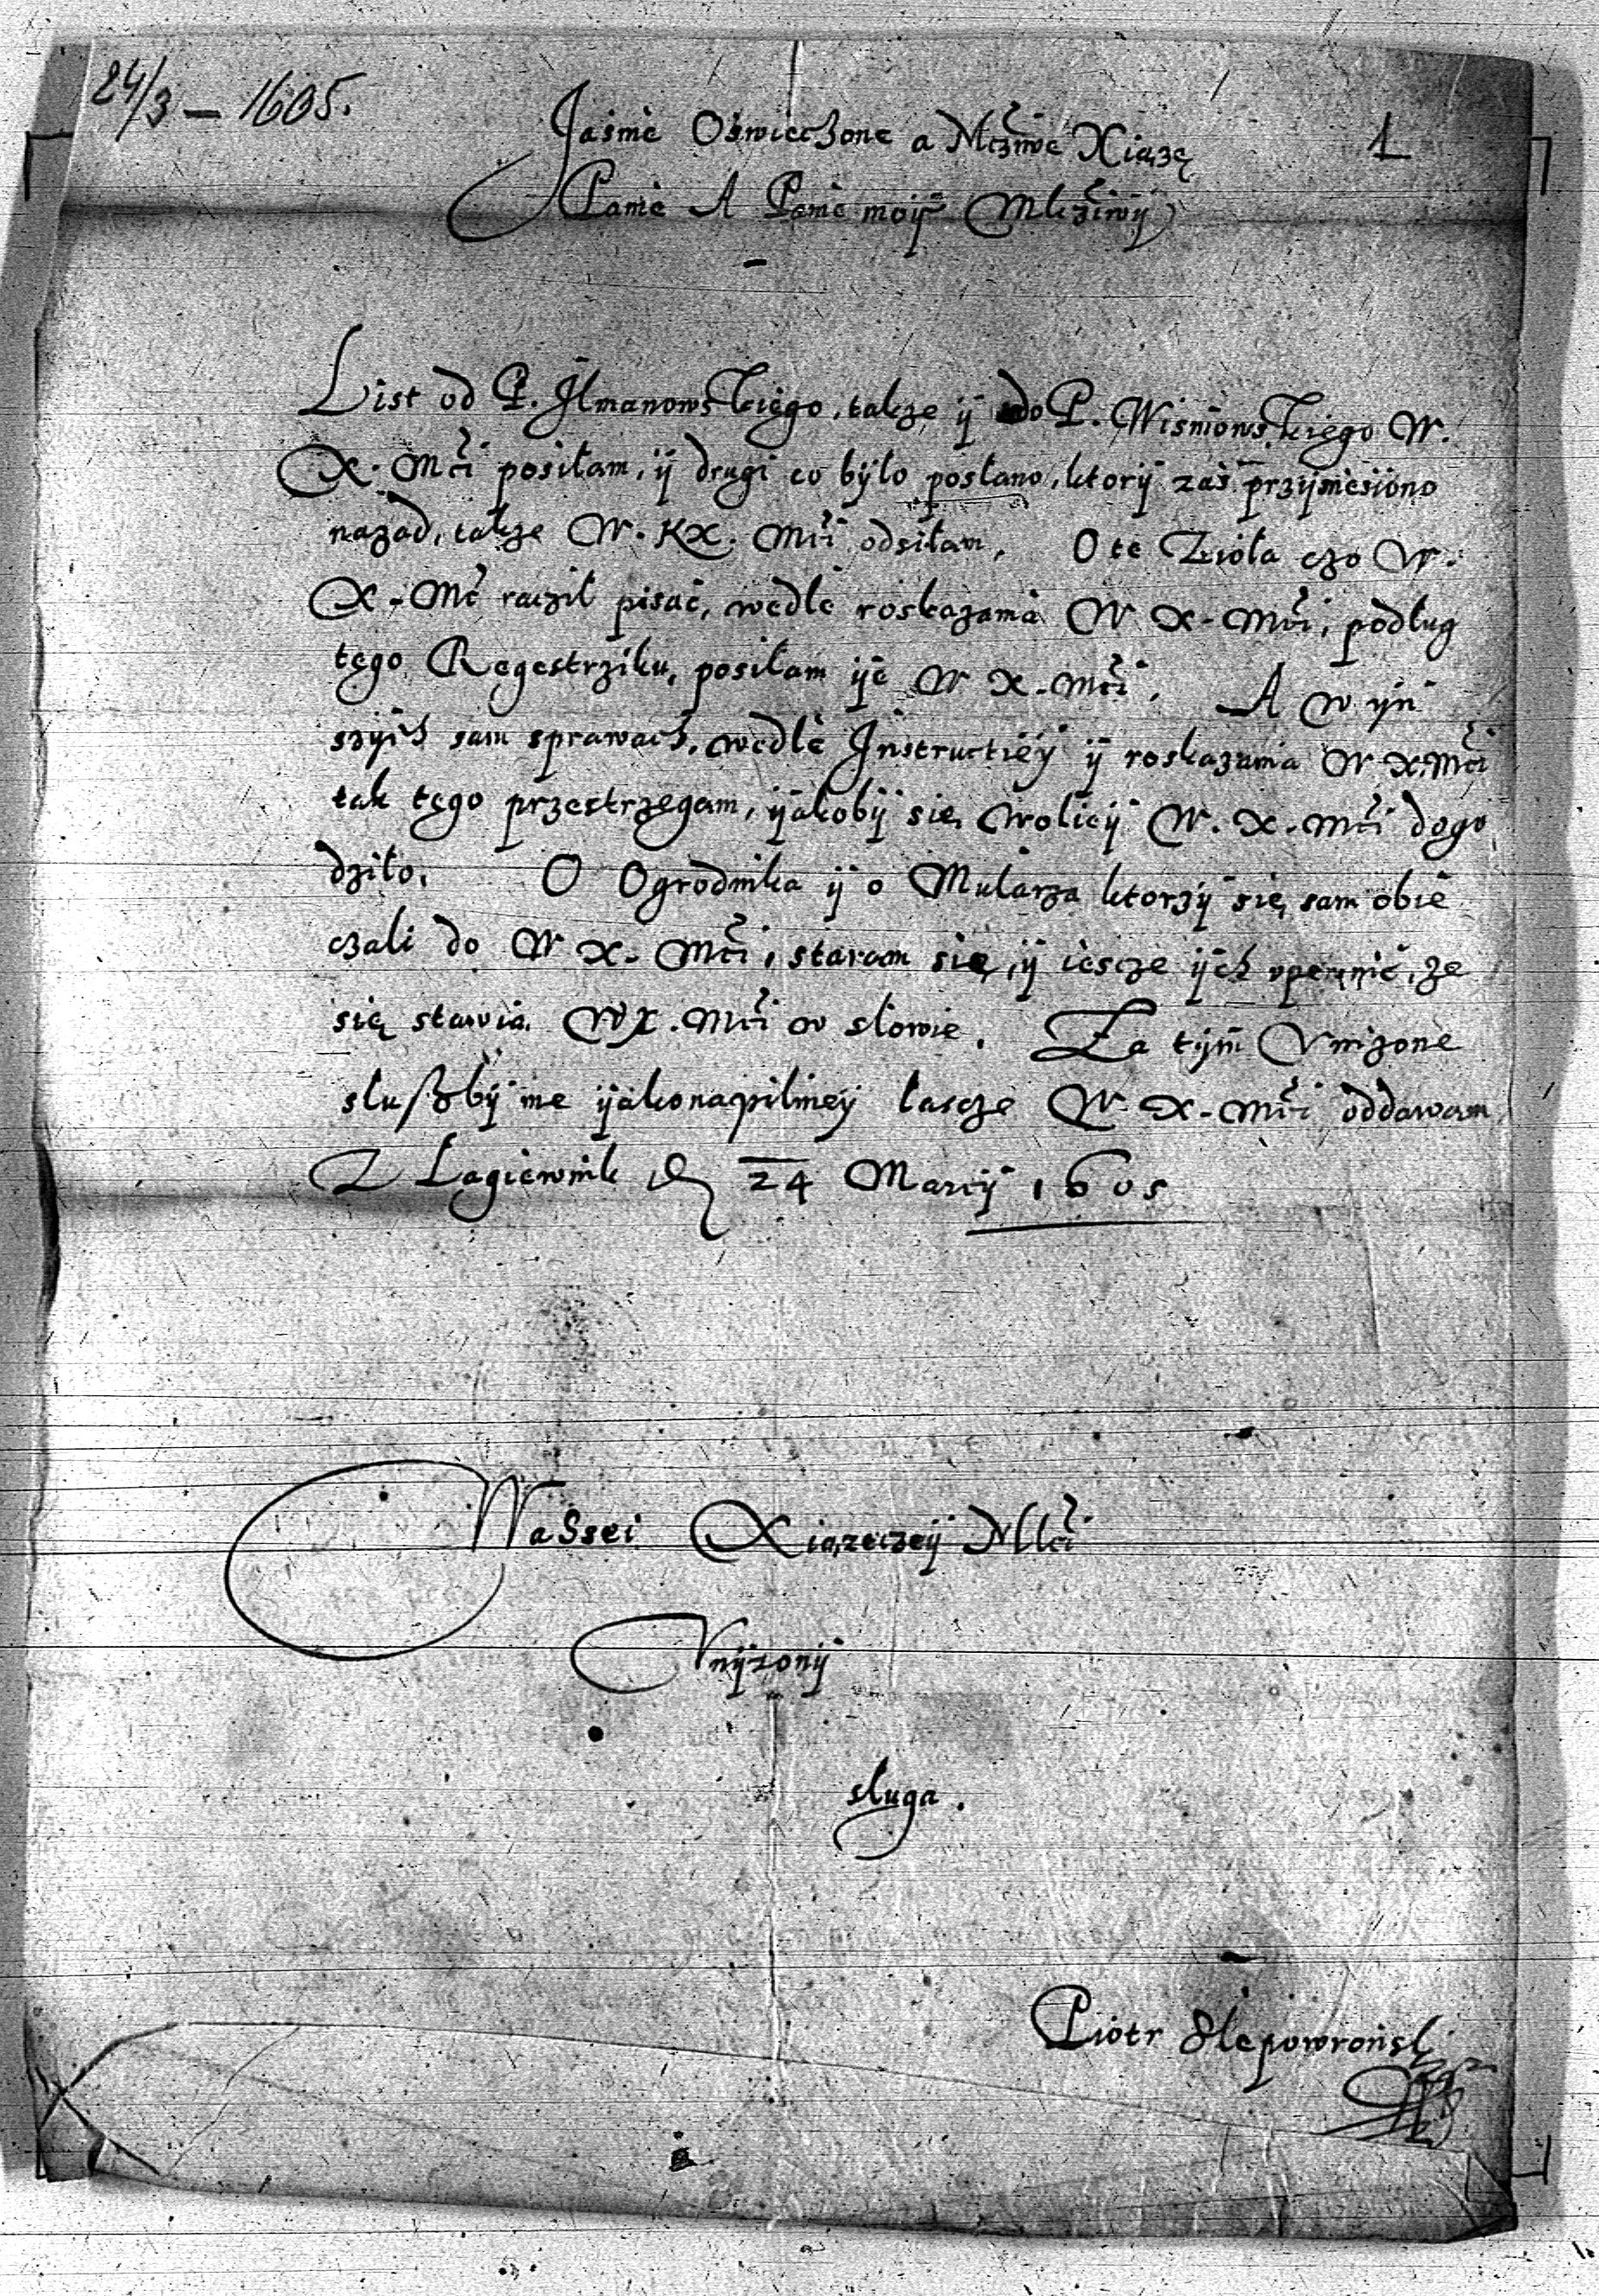 24/3 – 1605.
1
Jaśnie Oświeczone a Mczíwe Xiążę
Panie A Panie moÿ Mlczíwÿ
List od P. Ilmanowskiego, takze ÿ do P. Wisniowskiego W.
X. Mći posiłam, ÿ drugi co bÿło posłano, ktorÿ zaś przÿniesiono
nazad, takze W. KX. Mći odsiłam. O te Zioła czo W.
X. Mć racził pisać, wedle roskazania W X. Mći, podług
tego Regestrziku, posiłam ÿe W X. Mći. A w ÿn
szÿch sam sprawach, wedle Instructiey ÿ roskazania W X. Mći
tak tego przestrzegam, ÿakobÿ się wolieÿ W. X. Mći dogo
dziło. O Ogrodnika ÿ o Mularza ktorzÿ się sam obie
czali do W X. Mći, staram się, ÿ iescze ÿch upewnić, ze
się stawią WX. Mći w słowie. Za tÿm Vnizone
słuszbÿ me ÿakonapilnieÿ łascze W. X. Mći oddawam
Z Łagiewnik D 24 Marcÿ 1605
Wassei Xiązeczeÿ Młći
Vnÿzonÿ
sługa.
Piotr Slepowrońsk